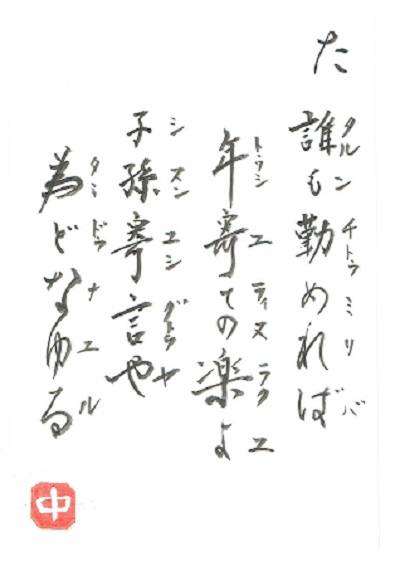 た
誰も勤めれば
タルンチトゥミリバ
年寄ての楽よ
トゥシユティヌラクユ
子孫寄言や
シスンユシグトゥヤ
為どなゆる
タミドゥナユル
中